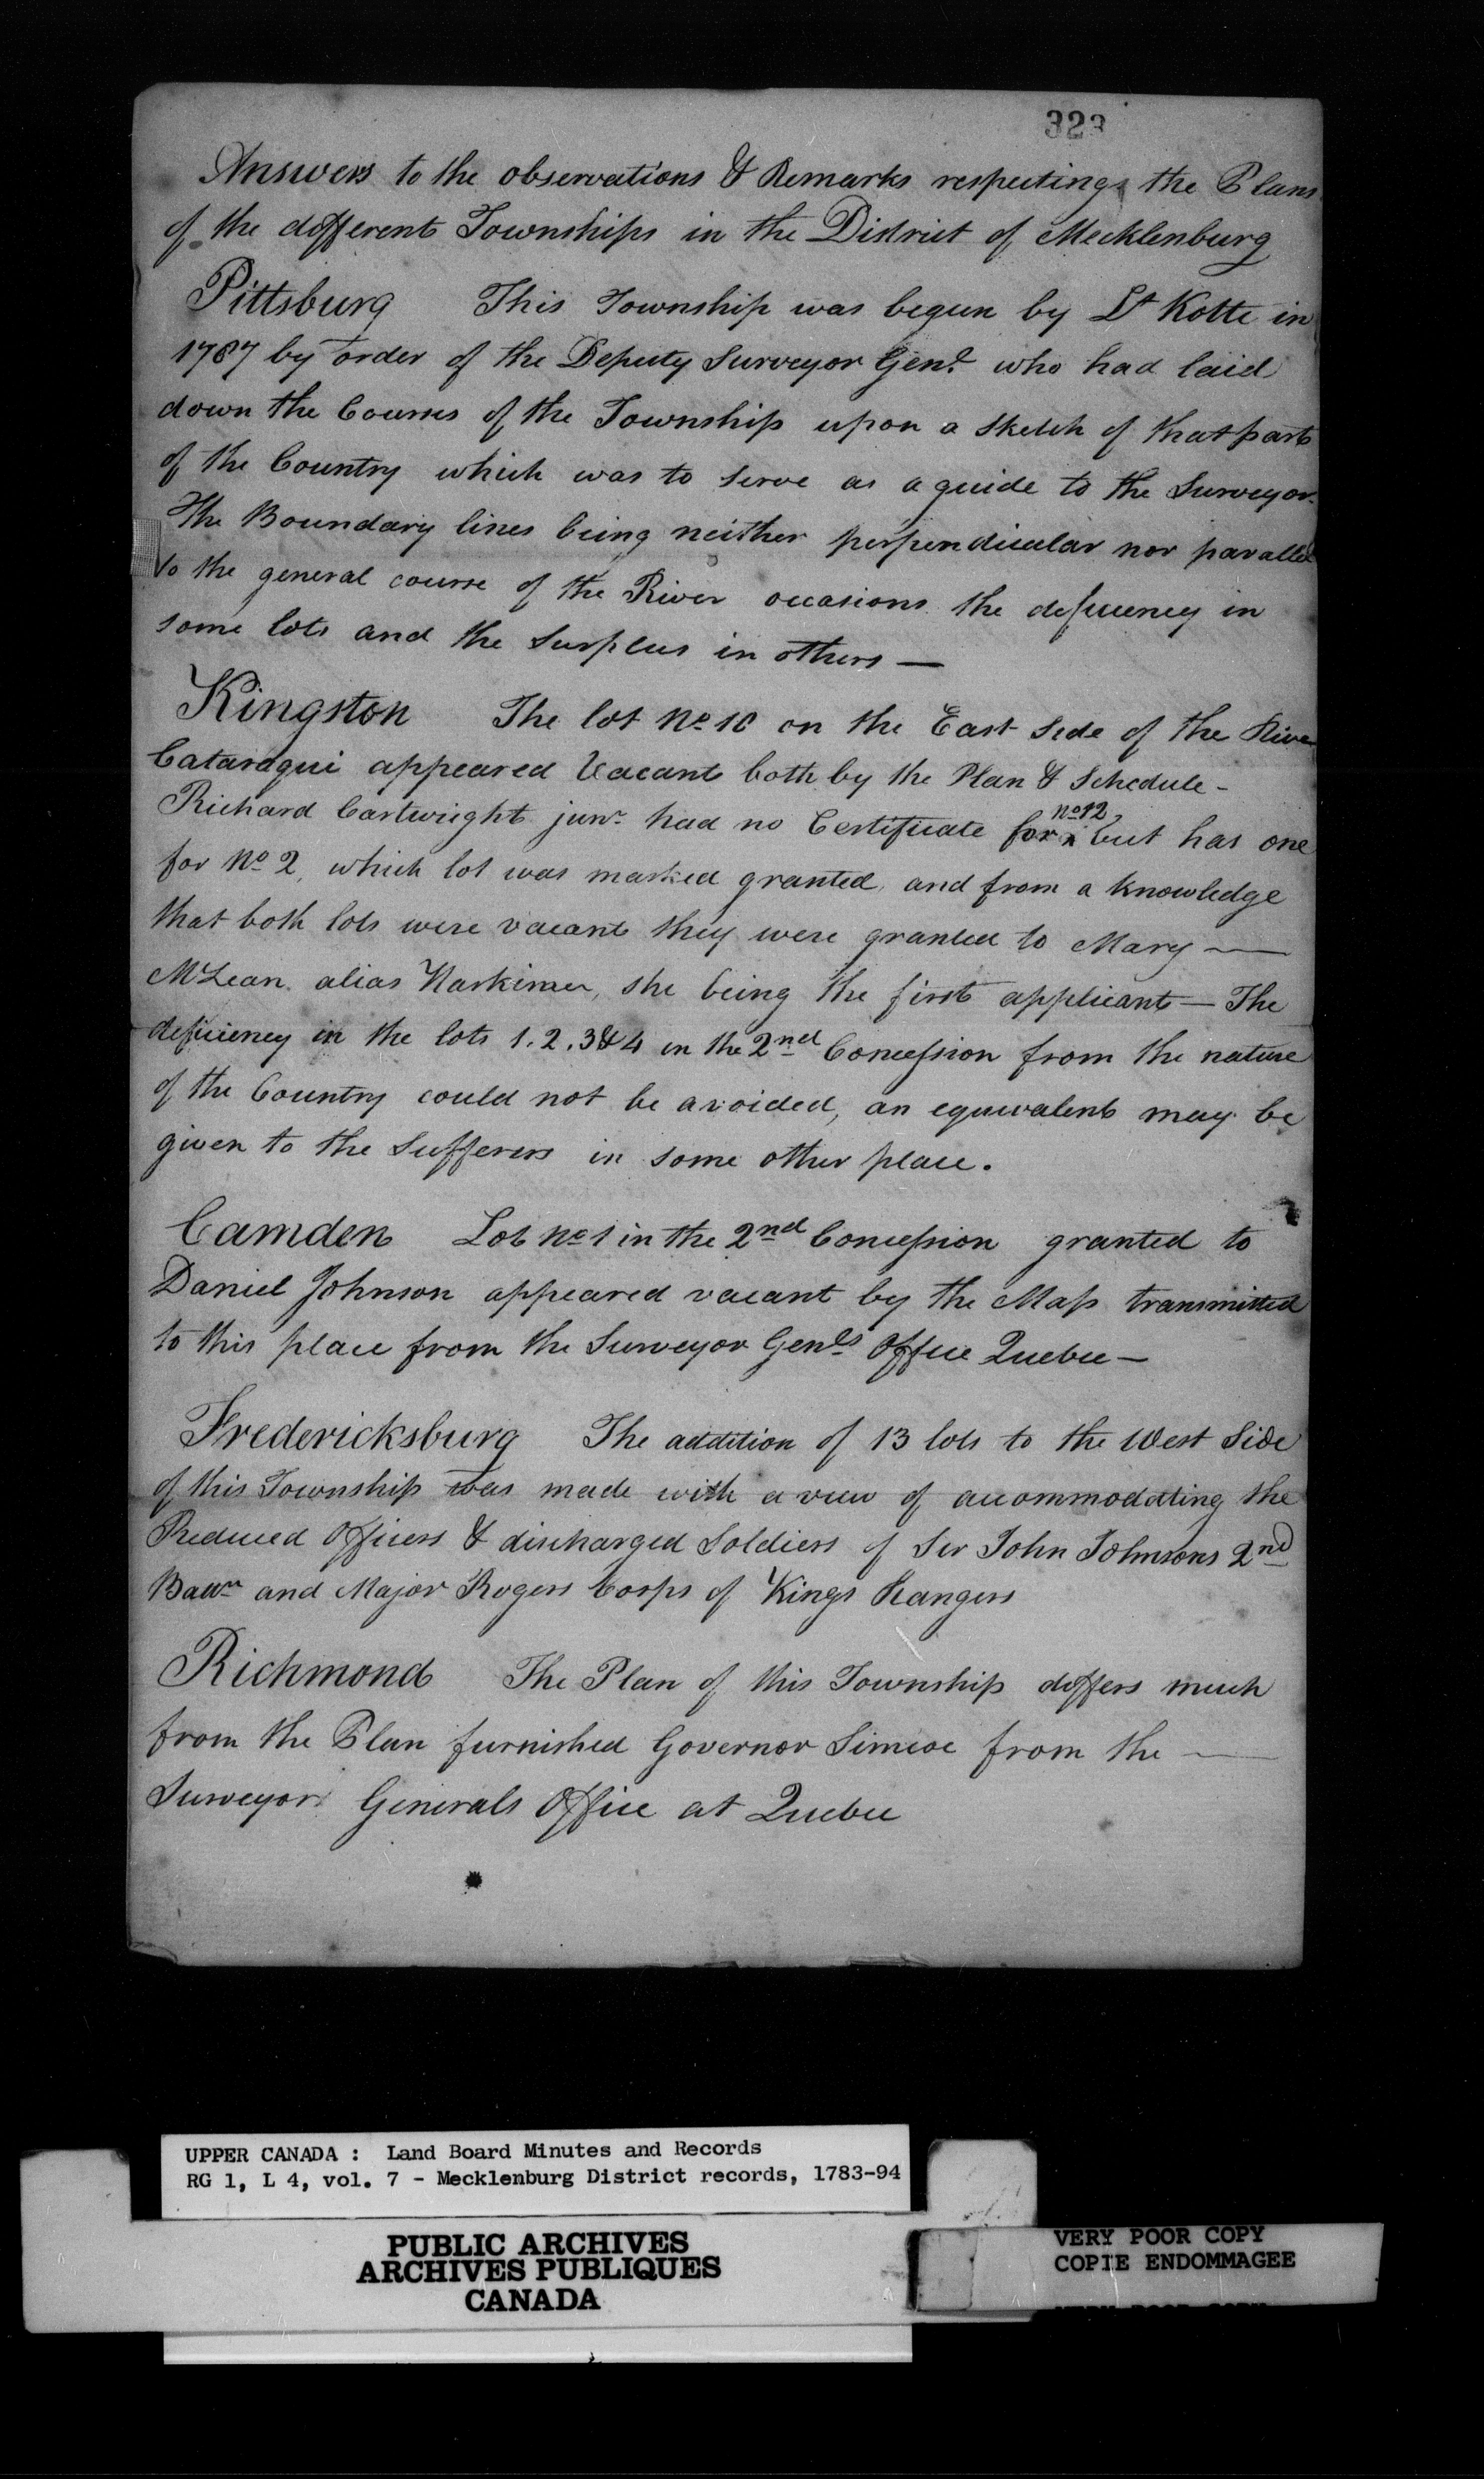 323
Answers to the observations & Remarks respecting the Plans
of the different Townships in the District of Mecklenburg
Pittsburg This Township was begun by Lt Kotte in
1787 by order of the Deputy Surveyor Genl. who had laid
down the Courses of the Township upon a Sketch of that part
of the Country which was to serve as a guide to the Surveyor.
The Boundary lines being neither perpendicular nor parallel
to the general course of the River occasions the deficiency in
some lots and the Surplus in others —
Kingston The lot No. 10 on the East Side of the River
Cataraqui appeared Vacant both by the Plan & Schedule -
Richard Cartwright junr. had no Certificate for ^ No. 12 but has one
for No. 2, which lot was marked granted, and from a knowledge
that both lots were vacant they were granted to Mary —
McLean alias Harkimer, she being the first applicant — The
deficiency in the lots 1. 2. 3 & 4 in the 2nd Concession from the nature
of the Country could not be avoided, an equivalent may be
given to the Sufferers in some other place.
Camden Lot No. 1 in the 2nd Concession granted to
Daniel Johnson appeared vacant by the Map transmitted
to this place from the Surveyor Genls. Office Quebec —
Fredericksburg The addition of 13 lots to the West Side
of this Township was made with a view of accommodating the
Reduced Officers & discharged Soldiers of Sir John Johnsons 2nd
Battn and Major Rogers Corps of Kings Rangers
Richmond The Plan of this Township differs much
from the Plan furnished Governor Simcoe from the —
Surveyor Generals Office at Quebec
UPPER CANADA : Land Board Minutes and Records
RG 1, L 4, vol. 7 - Mecklenburg District records, 1783-94
PUBLIC ARCHIVES
ARCHIVES PUBLIQUES
CANADA
VERY POOR COPY
COPIE ENDOMMAGEE